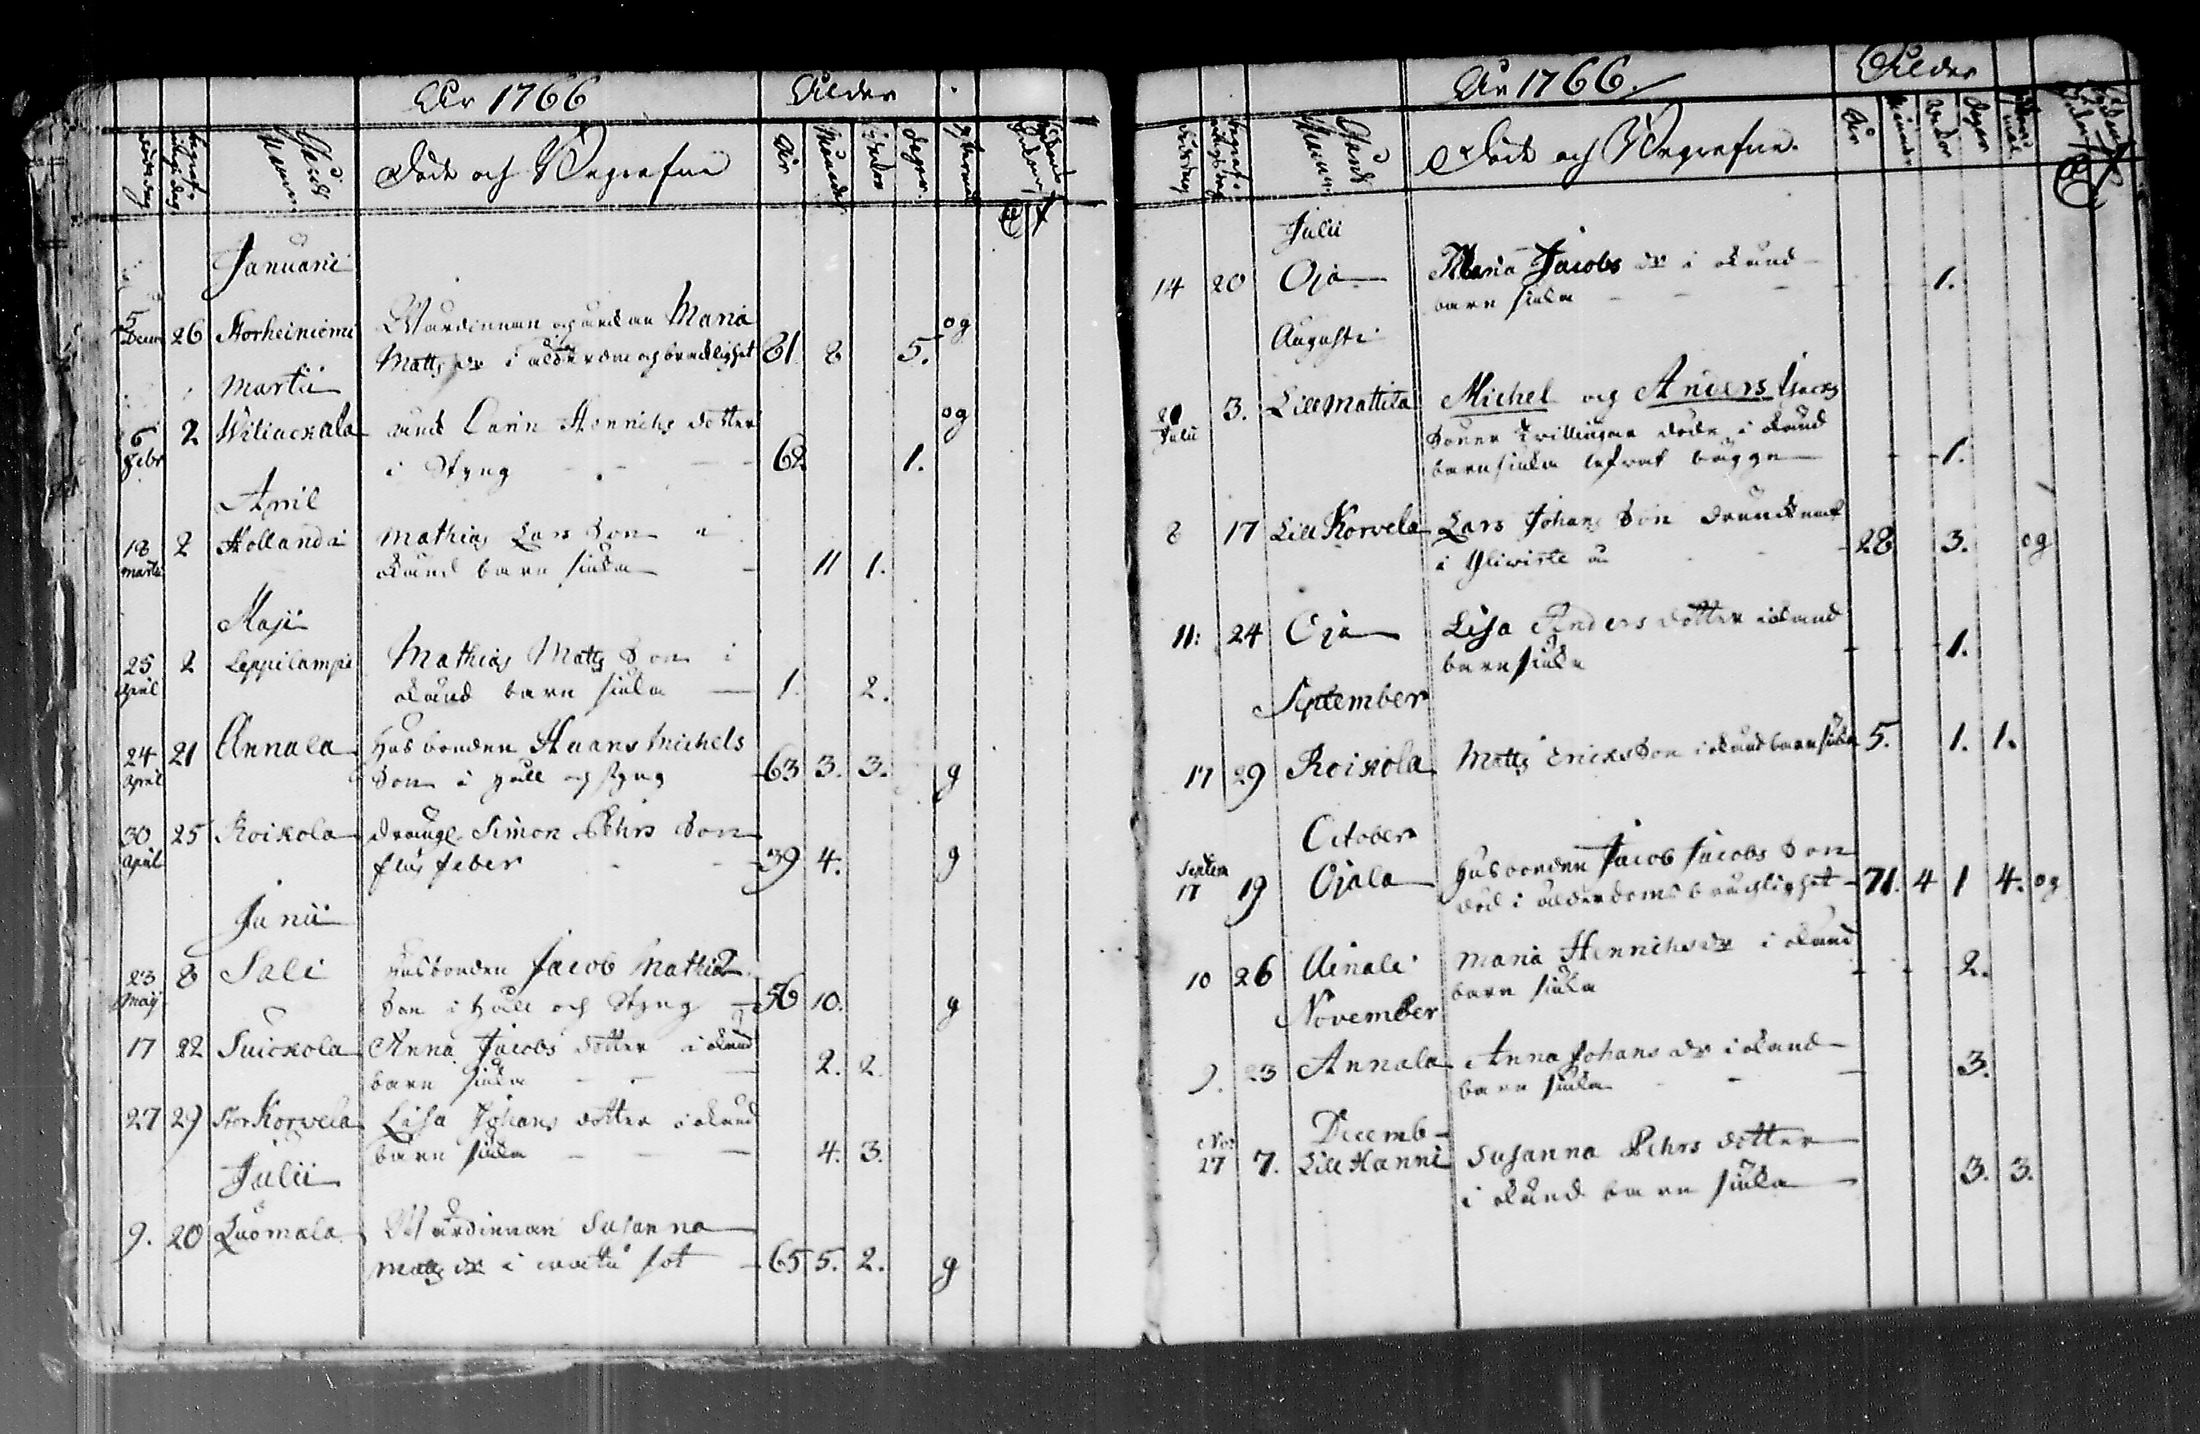 År 1766 Ålder
Döds dag Begrafnings dag Gårds Namn Döde och Begrafne År Månader Wekor Dagar
Januarii
5 Decem 26 Storheiniemi Wärdinnan Enckan Maria
Matts dr i ålderdom och bräcklighet 81 8 5. og
Martii
6 Febr 2 Wiliackala Carin Henrichs dotter og
i Styng 62. 1.
April
18 Martii 2 Hollanda Mathias Lars Son i
okänd barn siuka 11 1.
Maji
25 April 2 Leppilampi Mathias Matts Son i
okänd barn siuka 1. 2.
24 April 21 Annala Husbonden Hans Michels
Son i håll och styng 63 3. 3. g
30 April 25 Roikola Dräng Simon Pehrs Son
feber 39 4. g
Junii
23 Maij 8 Sali Husbonden Jacob Mathiæ
Son i håll och Styng 56 10. g
17 22 Suickola Anna Jacobs dotter i okänd
barn siuka 2. 2
27 29 StorKorvela Lisa Johans dotter i okänd
barn siuka 4. 3.
Julii
9. 20 Luomala Wärdinnan Susanna
Matts dr i sot 65 5. 2. g
År 1766. Ålder
Döds dag Begrafnings dag Gårds Namn Döde och Begrafne. År Månad Wekor Dagar
Julii
14 20 Oja Maria Jacobs dr i okänd
barn siuka 1.
Augusti
Julii 3. Lill Mattila Michel och Anders
Söner Tvillingar döde i okänd
barnsiuka bägge 1.
8 17 Lill Korvela Lars Johans Son drunknat
i Yliviste å 28 3. og
11: 24 Oja Lisa Anders dotter i okänd
barn siuka 1.
September
17 29 Roikola Matts Ericks Son i okänd barn siuka 5. 1. 1.
October
Septem 17 19 Ojala Husbonden Jacob Jacobs Son
död i ålderdoms bräcklighet 71. 4 1 4. og
10 26 Uinali Maria Henrichs dr i okänd
barn siuka 2.
November
9. 23 Annala Anna Johans dr i okänd
barn siuka 3.
Decemb
Nov 27 7. Lill Hanni Susanna Pehrs dotter
i okänd barn siuka 3. 3.